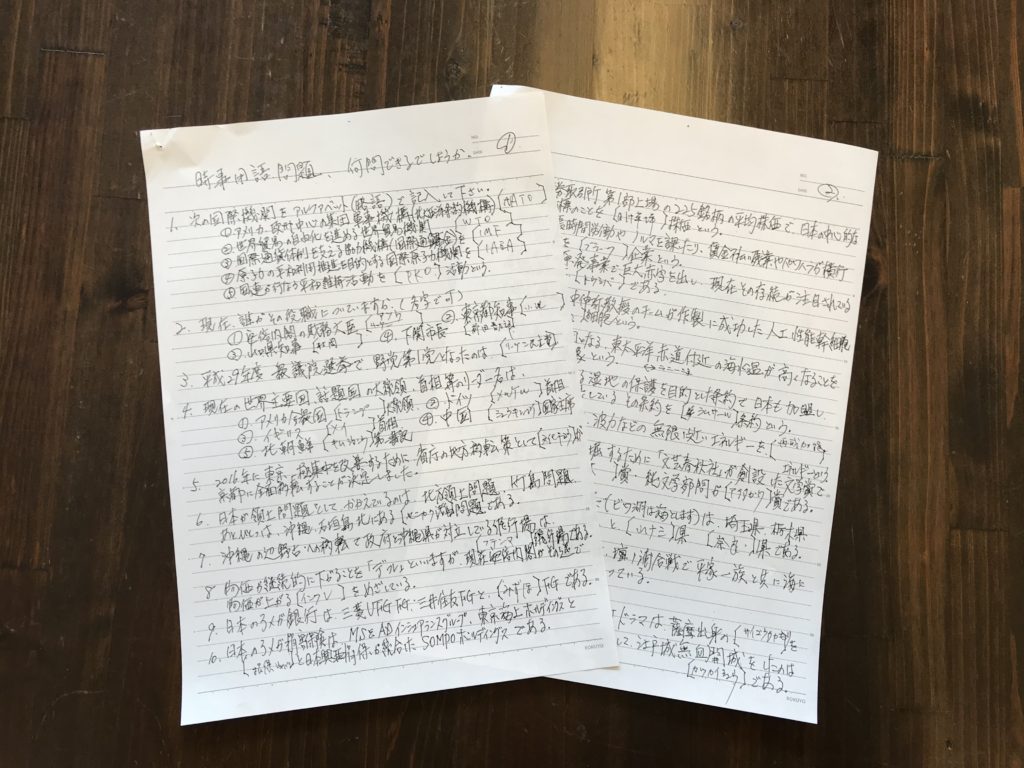 ①
時事用語問題、何問できるでしょうか。
1. 次の国際機関をアルファベット(略語)で記入して下さい。
① アメリカ、欧州中心の集団軍事機構(北大西洋条約機構)[NATO]
② 世界貿易の自由化を進める世界貿易機関 [WTO]
③ 国際通貨体制を支える協力機構(国際通貨基金)を[IMF]
④ 原子力の平和利用推進を目的とする国際原子力機関を[IAEA]
⑤ 国連が行なう平和維持活動を[PKO]活動という。
2. 現在、誰がその役職についていますか。(名字です)
① 安倍内閣の財務大臣 [アソウ] ② 東京都知事 [小池]
③ 山口県知事 [村岡] ④ 下関市長 [前田]
3. 平成29年度 衆議院選挙で野党第1党となったのは [リッケン民主党]
4. 現在の世界主要国、話題国の大統領、首相等のリーダー名は、
① アメリカ合衆国 [トランプ]大統領 ② ドイツ [メルケル]首相
③ イギリス [メイ]首相 ④ 中国 [シュウキンペイ]国家主席
⑤ 北朝鮮 [キムジョンウン]
5. 2016年に東京一極集中を改善するために、省庁の地方移転策として[文化庁]が
京都に全面移転することが決定しました。
6. 日本が領土問題としてかかえているのは、北方領土問題、竹島問題、
あと1つは、沖縄・石垣島北にある[センカク]諸島問題である。
7. 沖縄の辺野古への移転で政府と沖縄県が対立している飛行場は、
[フテンマ]飛行場である。
8. 物価が継続的に下がることを「デフレ」といいますが、現在安倍内閣が
物価が上がる[インフレ]をめざしている。
9. 日本の3メガ銀行は三菱UFJFG、三井住友FGと、[みずほ]FGである。
10. 日本の3メガ損害保険は、MS&ADインシュアランスグループ、東京海上ホールディングスと
日本興亜損保が合併したSOMPOホールディングスである。
KOKUYO
②
取引所 第1部上場の225銘柄の平均株価で、日本の中心的な
のことを[日経平均]株価という。
長時間労働やノルマを課したり、賃金不払い残業やパワハラが横行
を[ブラック]企業という。
発事業で巨大赤字を出し、現在その存続が注目されている
[トウシバ]である。
山中伸弥教授のチームが作製に成功した人工多能性幹細胞
細胞という。
なる、東太平洋 赤道付近の海水温が高くなることを
という。
湿地の保護を目的とした条約で日本も加盟し
している その条約を[ラムサール]条約という。
波力などの無限に近いエネルギーを[再生可能]
エネルギーという。
するために「文芸春秋社」が創設した文学賞で
賞、純文学部門が[アクタガワ]賞である。
(ビワ湖はあります)は、埼玉県・栃木県
と[山ナシ]県[奈良]県である。
壇ノ浦合戦で平家一族と共に海に
ている。
ドラマは薩摩出身の[サイゴウタカモリ]を
して、江戸城無血開城をしたのは
[カツカイシュウ]である。
KOKUYO